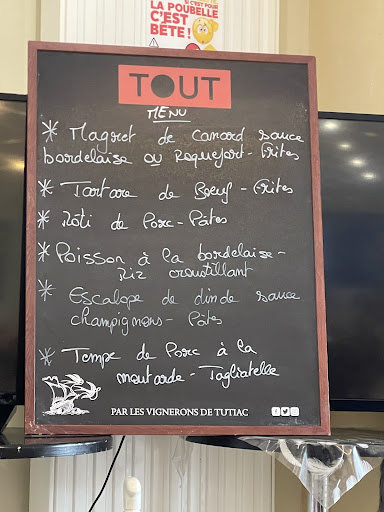 SI C'EST POUR
LA POUBELLE
C'EST
BÊTE !
TOUT
MENU
* Magret de canard sauce
bordelaise ou Roquefort - Frites
* Tartare de Boeuf - Frites
* Rôti de Porc - Pâtes
* Poisson à la bordelaise -
Riz croustillant
* Escalope de dinde sauce
champignons - Pâtes
* Tempe de Porc à la
moutarde - Tagliatelle
PAR LES VIGNERONS DE TUTIAC